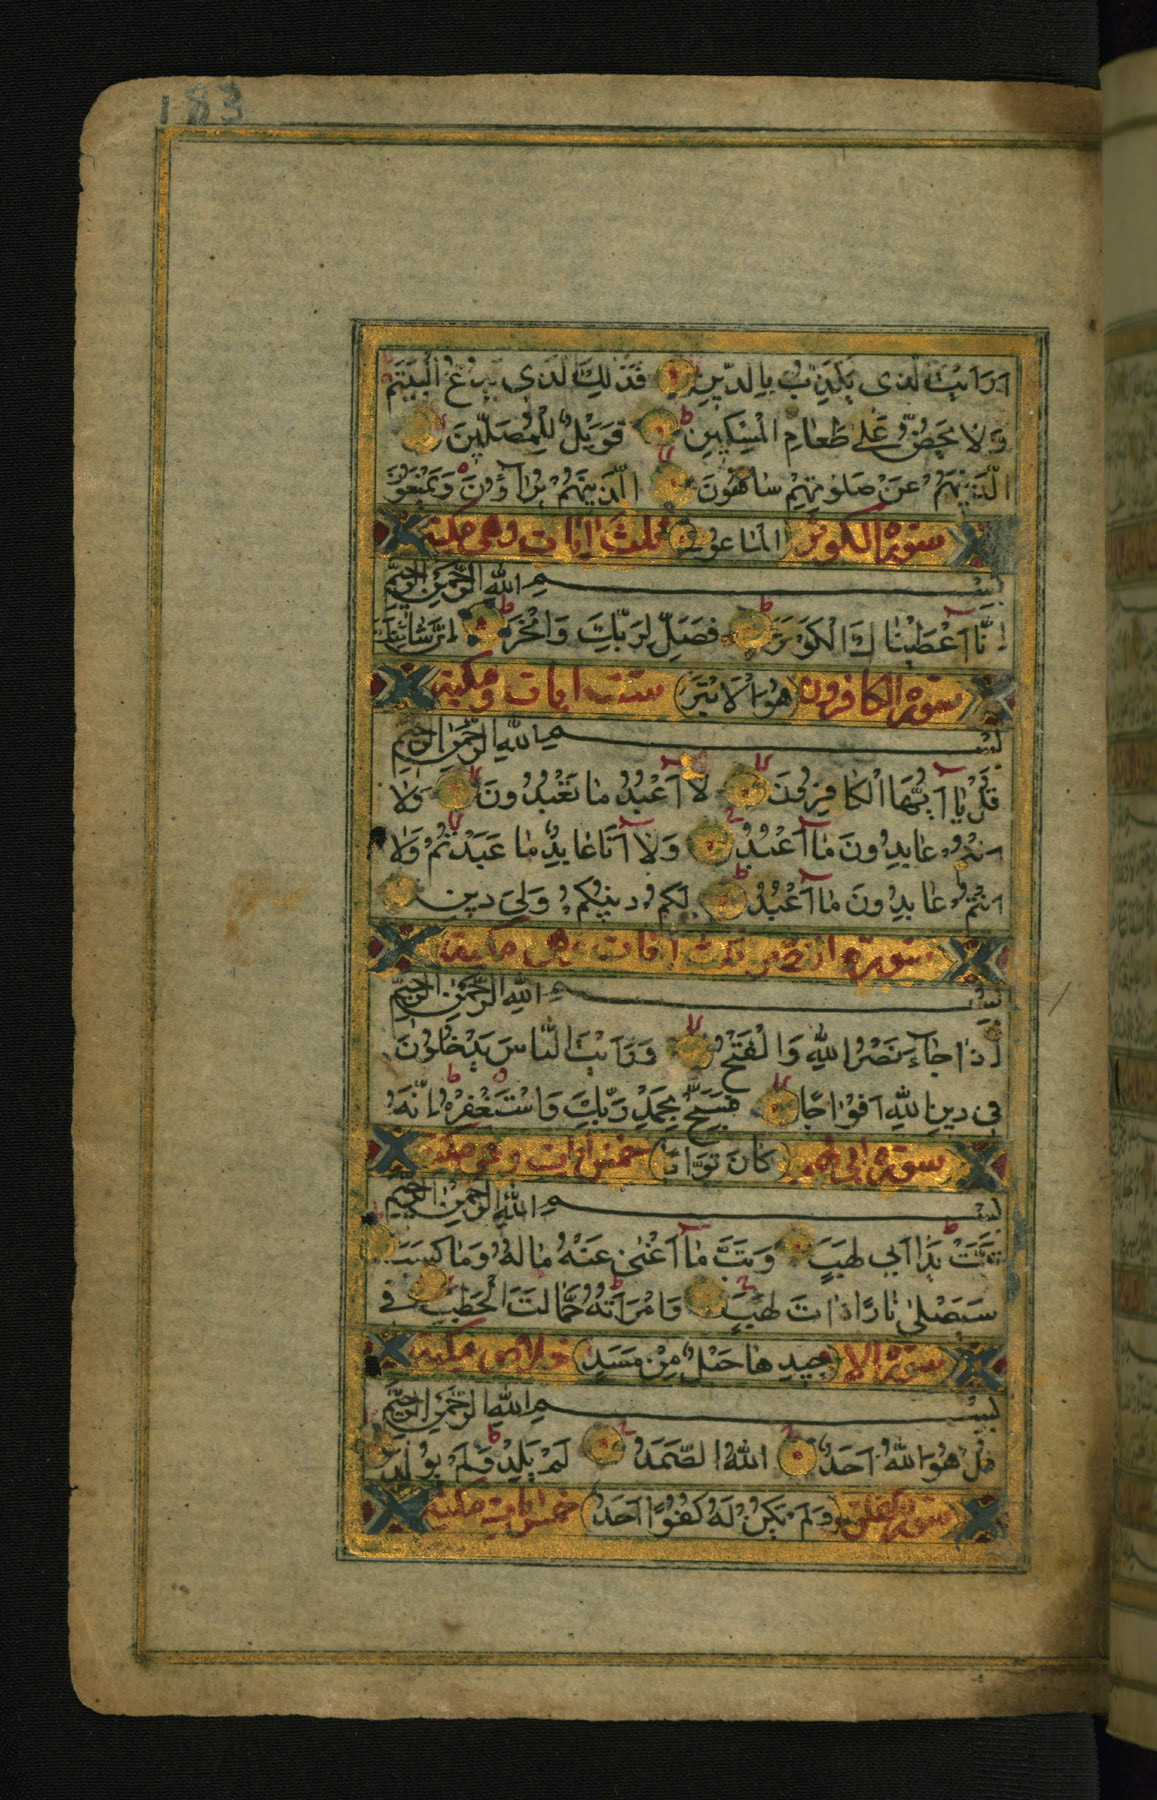 183
اَرَاَيْتَ الَّذى يُكَذِّبُ بِالدّينِ فَذٰلِكَ الَّذى يَدُعُّ الْيَتيمَ
وَلَا يَحُضُّ عَلٰى طَعَامِ الْمِسْكينِ فَوَيْلٌ لِلْمُصَلّينَ
اَلَّذينَهُمْ عَنْ صَلٰوتِهِمْ سَاهُونَ اَلَّذينَهُمْ يُرَآؤُنَ وَيَمْنَعُونَ
سورة الكوثر الْمَاعُونَ ثلث ايات وهى مكية
بِسْمِ اللهِ الرَّحْمٰنِ الرَّحيمِ
اِنَّا اَعْطَيْنَاكَ الْكَوْثَرَ فَصَلِّ لِرَبِّكَ وَانْحَرْ اِنَّ شَانِئَكَ
سورة الكافرون هُوَ الْاَبْتَرُ ستت ايات ومكية
بِسْمِ اللهِ الرَّحْمٰنِ الرَّحيمِ
قُلْ يَا اَيُّهَا الْكَافِرُونَ لَا اَعْبُدُ مَا تَعْبُدُونَ وَلَا
اَنْتُمْ عَابِدُونَ مَا اَعْبُدُ وَلَا اَنَا عَابِدٌ مَا عَبَدْتُمْ وَلَا
اَنْتُمْ عَابِدُونَ مَا اَعْبُدُ لَكُمْ دينُكُمْ وَلِىَ دينِ
سورة النصر ثلث ايات وهى مكية
بِسْمِ اللهِ الرَّحْمٰنِ الرَّحيمِ
اِذَا جَآءَ نَصْرُ اللهِ وَالْفَتْحُ وَرَاَيْتَ النَّاسَ يَدْخُلُونَ
فى دينِ اللهِ اَفْوَاجًا فَسَبِّحْ بِحَمْدِ رَبِّكَ وَاسْتَغْفِرْهُ اِنَّهُ
سورة ابى لهب كَانَ تَوَّابًا خمس ايات وهى مكية
بِسْمِ اللهِ الرَّحْمٰنِ الرَّحيمِ
تَبَّتْ يَدَا اَبى لَهَبٍ وَتَبَّ مَا اَغْنٰى عَنْهُ مَالُهُ وَمَا كَسَبَ
سَيَصْلٰى نَارًا ذَاتَ لَهَبٍ وَامْرَاَتُهُ حَمَّالَتَ الْحَطَبِ فى
سورة الا جيدِهَا حَبْلٌ مِنْ مَسَدٍ خلاص مكية
بِسْمِ اللهِ الرَّحْمٰنِ الرَّحيمِ
قُلْ هُوَ اللهُ اَحَدٌ اَللهُ الصَّمَدُ لَمْ يَلِدْ وَلَمْ يُولَدْ
سورة الفلق وَلَمْ يَكُنْ لَهُ كُفُوًا اَحَدٌ خمس ايات مكية